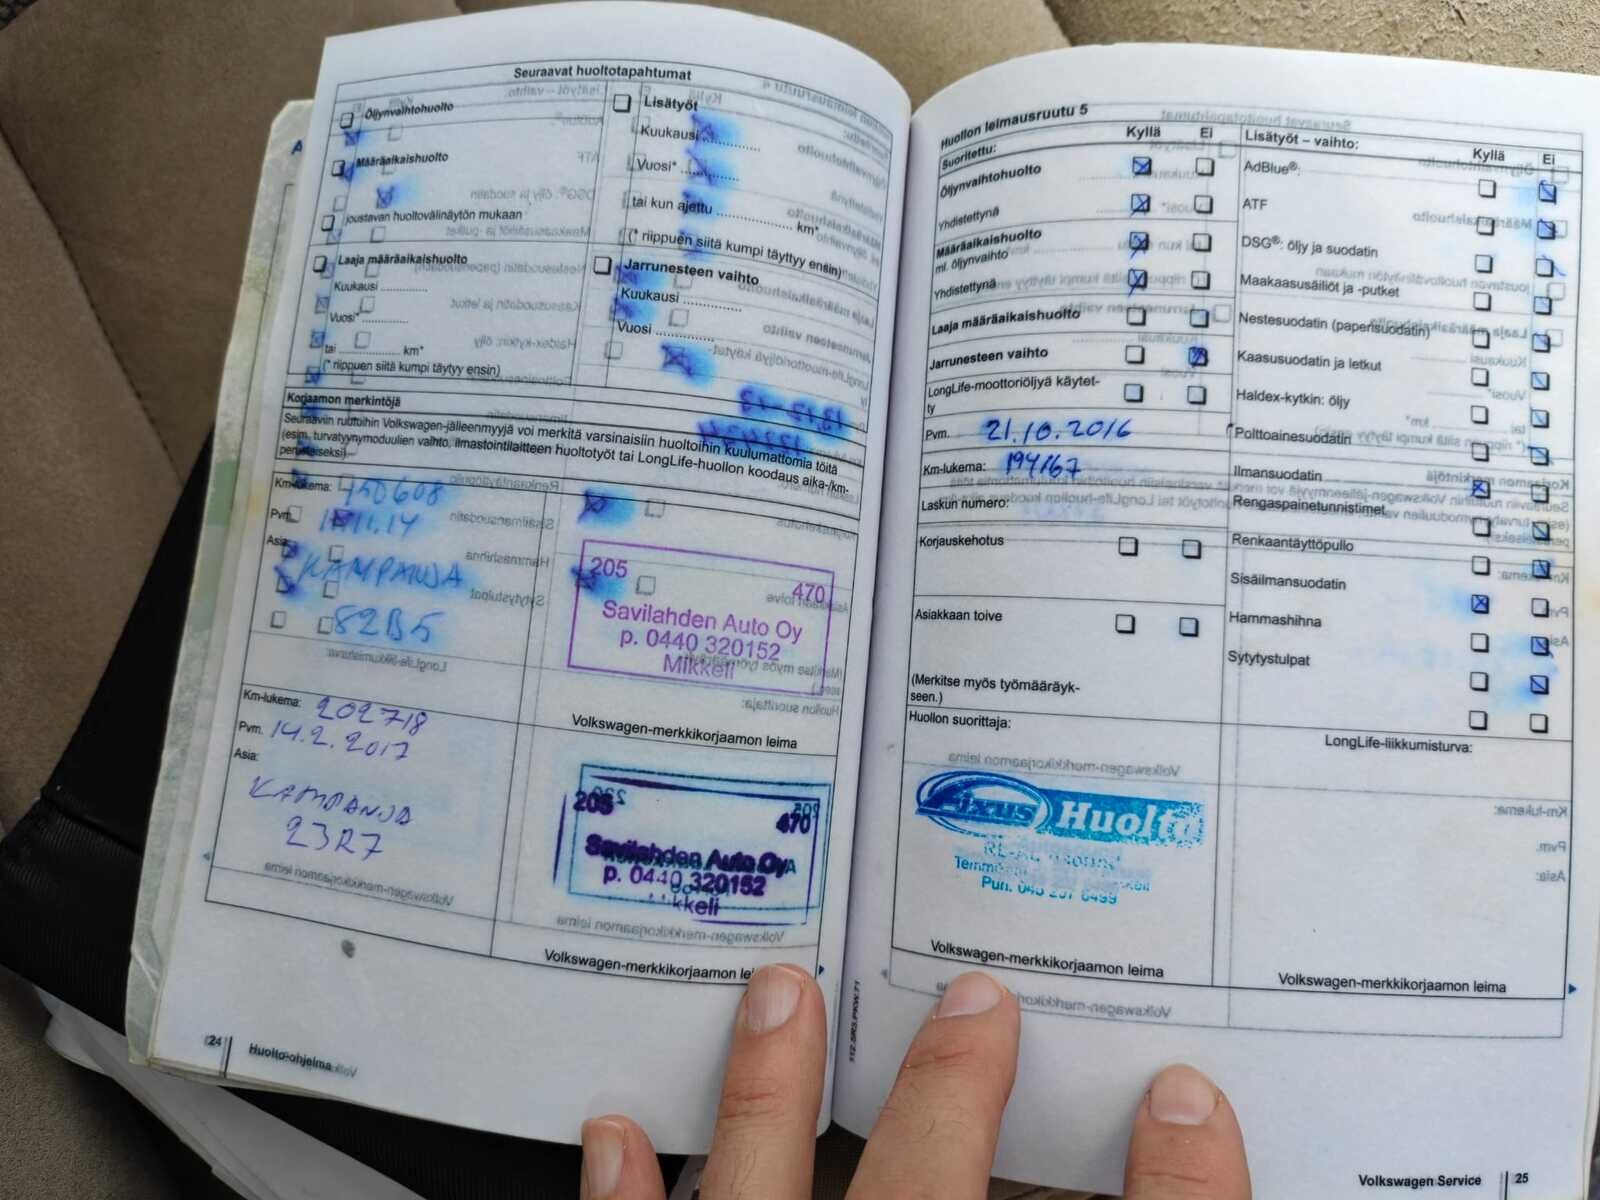 Seuraavat huoltotapahtumat
Öljynvaihtohuolto
Määräaikaishuolto
joustavan huoltovälinäytön mukaan
Laaja määräaikaishuolto
Kuukausi .............
Vuosi* .............
tai .................... km*
(* riippuen siitä kumpi täytyy ensin)
Lisätyöt
Kuukausi ...............
Vuosi* ...............
tai kun ajettu .................... km*
(* riippuen siitä kumpi täyttyy ensin)
Jarrunesteen vaihto
Kuukausi ...............
Vuosi ...............
Korjaamon merkintöjä
Seuraaviin ruutuihin Volkswagen-jälleenmyyjä voi merkitä varsinaisiin huoltoihin kuulumattomia töitä
(esim. turvatyynymoduulien vaihto, ilmastointilaitteen huoltotyöt tai LongLife-huollon koodaus aika-/km-
perusteiseksi)
Km-lukema: 150608
Pvm.
Asia:
KAMPANJA
82B5
205
470
Savilahden Auto Oy
p. 0440 320152
Mikkeli
Volkswagen-merkkikorjaamon leima
Km-lukema: 202718
Pvm. 14.2.2017
Asia:
KAMPANJA
23R7
205
470
Savilahden Auto Oy
p. 0440 320152
Mikkeli
Volkswagen-merkkikorjaamon leima
24
Huolto-ohjelma
Huollon leimausruutu 5
Suoritettu:
Kyllä Ei
Öljynvaihtohuolto
Yhdistettynä
Määräaikaishuolto
ml. öljynvaihto
Yhdistettynä
Laaja määräaikaishuolto
Jarrunesteen vaihto
LongLife-moottoriöljyä käytet-
ty
Pvm. 21.10.2016
Km-lukema: 194167
Laskun numero:
Korjauskehotus
Asiakkaan toive
(Merkitse myös työmääräyk-
seen.)
Huollon suorittaja:
Fixus Huolto
Volkswagen-merkkikorjaamon leima
Lisätyöt – vaihto:
Kyllä Ei
AdBlue®:
ATF
DSG®: öljy ja suodatin
Maakaasusäiliöt ja -putket
Nestesuodatin (paperisuodatin)
Kaasusuodatin ja letkut
Haldex-kytkin: öljy
Polttoainesuodatin
Ilmansuodatin
Rengaspainetunnistimet
Renkaantäyttöpullo
Sisäilmansuodatin
Hammashihna
Sytytystulpat
LongLife-liikkumisturva:
Volkswagen-merkkikorjaamon leima
Volkswagen Service
25